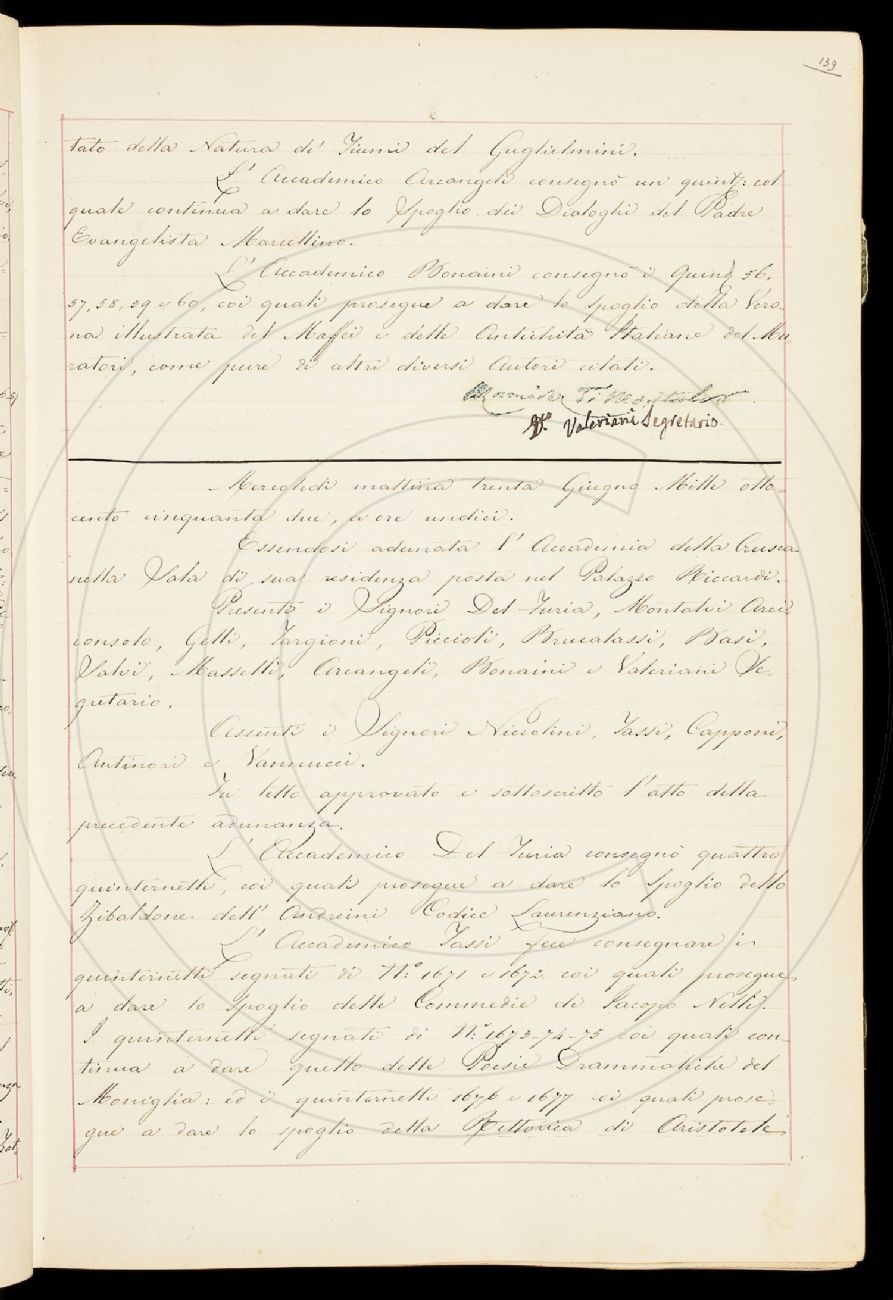 139
tato della Natura de' Fiumi del Guglielmini.
L' Accademico Arcangeli consegnò un quint: col
quale continua a dare lo Spoglio dei Dialoghi del Padre
Evangelista Marcellino.
L' Accademico Bonaini consegnò i Quint 56,
57, 58, 59 e 60, coi quali prosegue a dare lo spoglio della Vero-
na illustrata del Maffei e delle Antichità Italiane del Mu
ratori, come pure di altri diversi Autori citati.
Valeriani Segretario.
Mercoledì mattina trenta Giugno Mille otto
cento cinquanta due, a ore undici.
Essendosi adunata l' Accademia della Crusca
nella Sala di sua residenza posta nel Palazzo Riccardi.
Presenti i Signori Del-Furia, Montalvi Arci
consolo, Gelli, Targioni, Piccioli, Brucalassi, Basi,
Salvi, Masselli, Arcangeli, Bonaini e Valeriani Se-
gretario.
Assenti i Signori Niccolini, Tassi, Capponi,
Antinori e Vannucci.
Fu letto approvato e sottoscritto l'atto della
precedente adunanza.
L' Accademico Del-Furia consegnò quattro
quinternetti, coi quali prosegue a dare lo Spoglio dello
Zibaldone dell' Andreini Codice Laurenziano.
L' Accademico Tassi fece consegnare i
quinternetti segnati di N.° 1671 e 1672 coi quali prosegue
a dare lo Spoglio delle Commedie di Jacopo Nelli.
I quinternetti segnati di N.° 1673-74-75 coi quali con-
tinua a dare quello delle Poesie Drammatiche del
Moniglia: ed i quinternetti 1676 e 1677 coi quali prose-
gue a dare lo spoglio della Rettorica di Aristotele